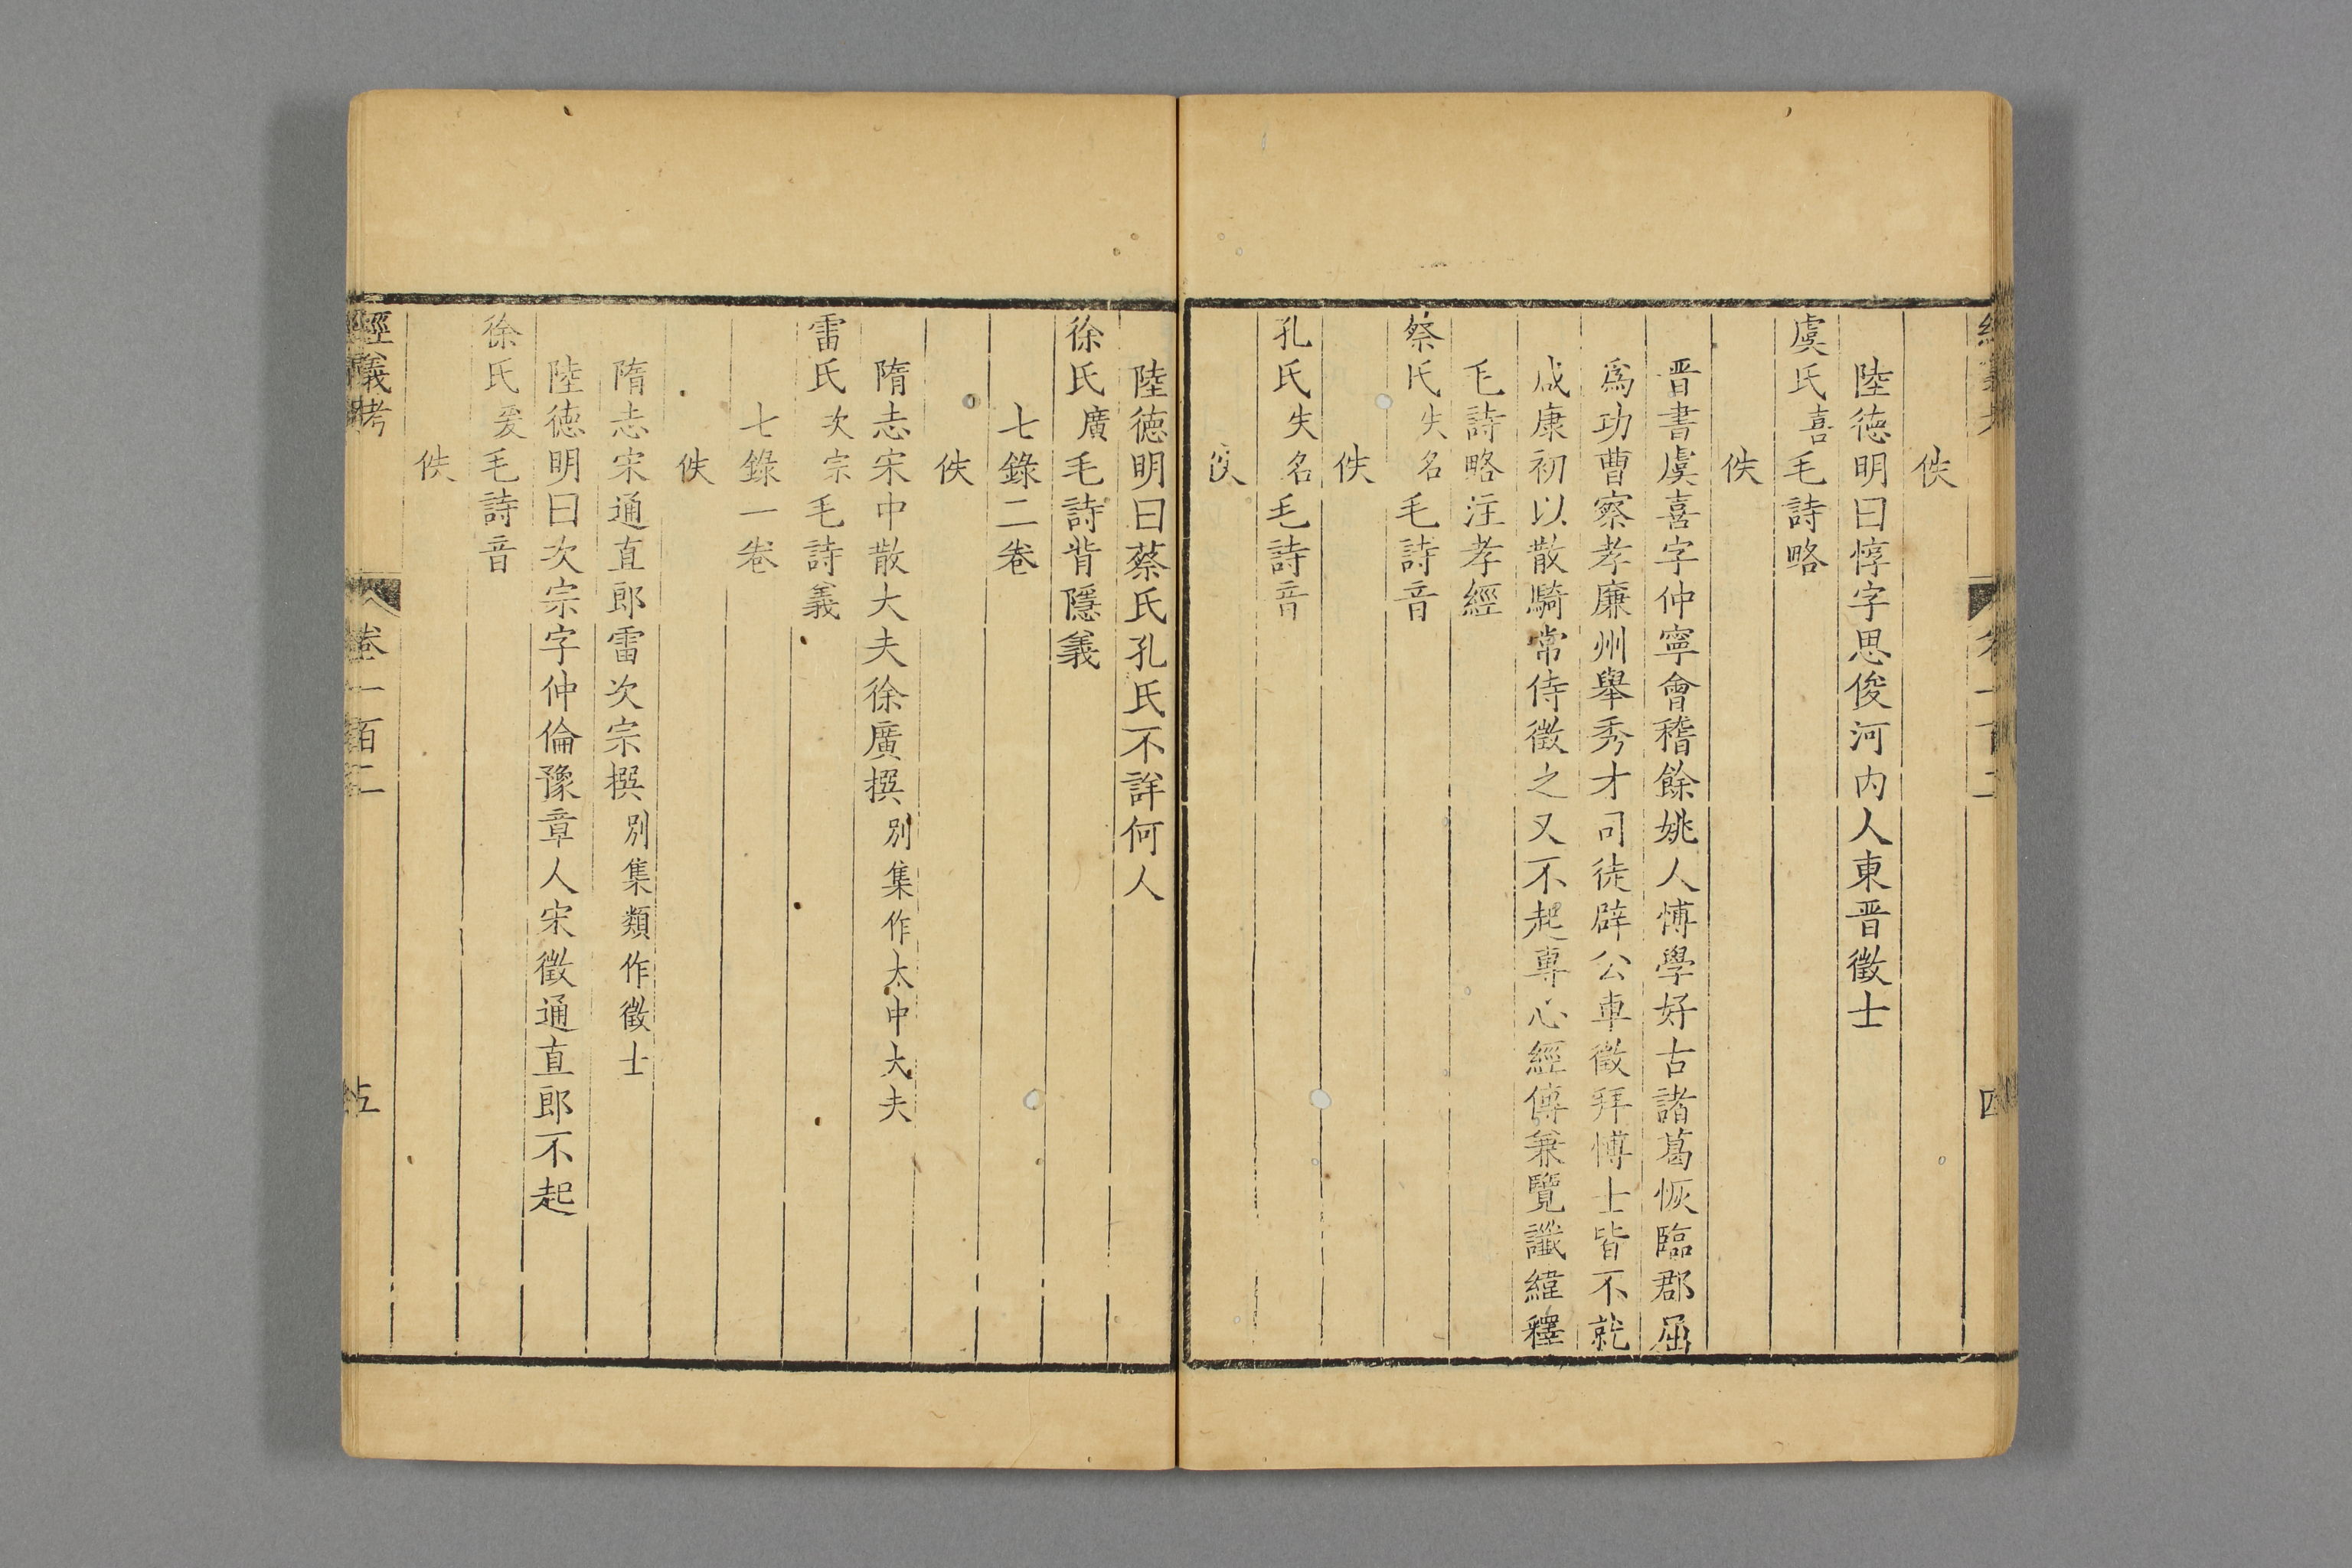 佚
陸德明曰惇字思俊河内人東晋徵士
虞氏喜毛詩略
佚
晋書虞喜字仲寧會稽餘姚人博學好古諸葛恢臨郡屈
爲功曹察孝廉州舉秀才司徒辟公車徵拜博士皆不就
咸康初以散騎常侍徵之又不起專心經傳兼覽讖緯釋
毛詩略注孝經
蔡氏失名毛詩音
佚
孔氏失名毛詩音
佚
陸德明曰蔡氏孔氏不詳何人
徐氏廣毛詩背隱義
七錄二卷
佚
隋志宋中散大夫徐廣撰別集作太中大夫
雷氏次宗毛詩義
七錄一卷
佚
隋志宋通直郎雷次宗撰別集類作徵士
陸德明曰次宗字仲倫豫章人宋徵通直郎不起
徐氏爰毛詩音
佚
經義考 卷一百二 五